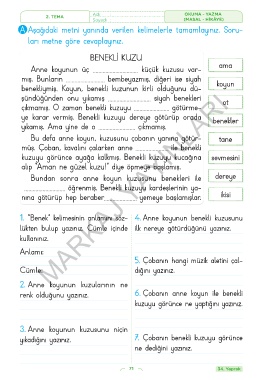 2. TEMA
OKUMA - YAZMA
(MASAL - HİKÂYE)
A Aşağıdaki metni yanında verilen kelimelerle tamamlayınız. Soru-
ları metne göre cevaplayınız.
BENEKLİ KUZU
Anne koyunun üç küçük kuzusu var-
mış. Bunların bembeyazmış, diğeri ise siyah
benekliymiş. Koyun, benekli kuzunun kirli olduğunu dü-
şündüğünden onu yıkamış siyah benekleri
çıkmamış. O zaman benekli kuzuyu götürme-
ye karar vermiş. Benekli kuzuyu dereye götürüp orada
yıkamış. Ama yine de a çıkmamış.
Bu defa anne koyun, kuzusunu çobanın yanına götür-
müş. Çoban, kavalını çalarken anne ile benekli
kuzuyu görünce ayağa kalkmış. Benekli kuzuyu kucağına
alıp "Aman ne güzel kuzu!" diye öpmeye başlamış.
Bundan sonra anne koyun kuzusunu benekleri ile
öğrenmiş. Benekli kuzuyu kardeşlerinin ya-
nına götürüp hep beraber yemeye başlamışlar.
ama
koyun
ot
benekler
tane
sevmesini
dereye
ikisi
1. "Benek" kelimesinin anlamını söz-
lükten bulup yazınız. Cümle içinde
kullanınız.
Anlamı:
Cümle:
2. Anne koyunun kuzularının ne
renk olduğunu yazınız.
3. Anne koyunun kuzusunu niçin
yıkadığını yazınız.
4. Anne koyunun benekli kuzusunu
ilk nereye götürdüğünü yazınız.
5. Çobanın hangi müzik aletini çal-
dığını yazınız.
6. Çobanın anne koyun ile benekli
kuzuyu görünce ne yaptığını yazınız.
7. Çobanın benekli kuzuyu görünce
ne dediğini yazınız.
71
34. Yaprak